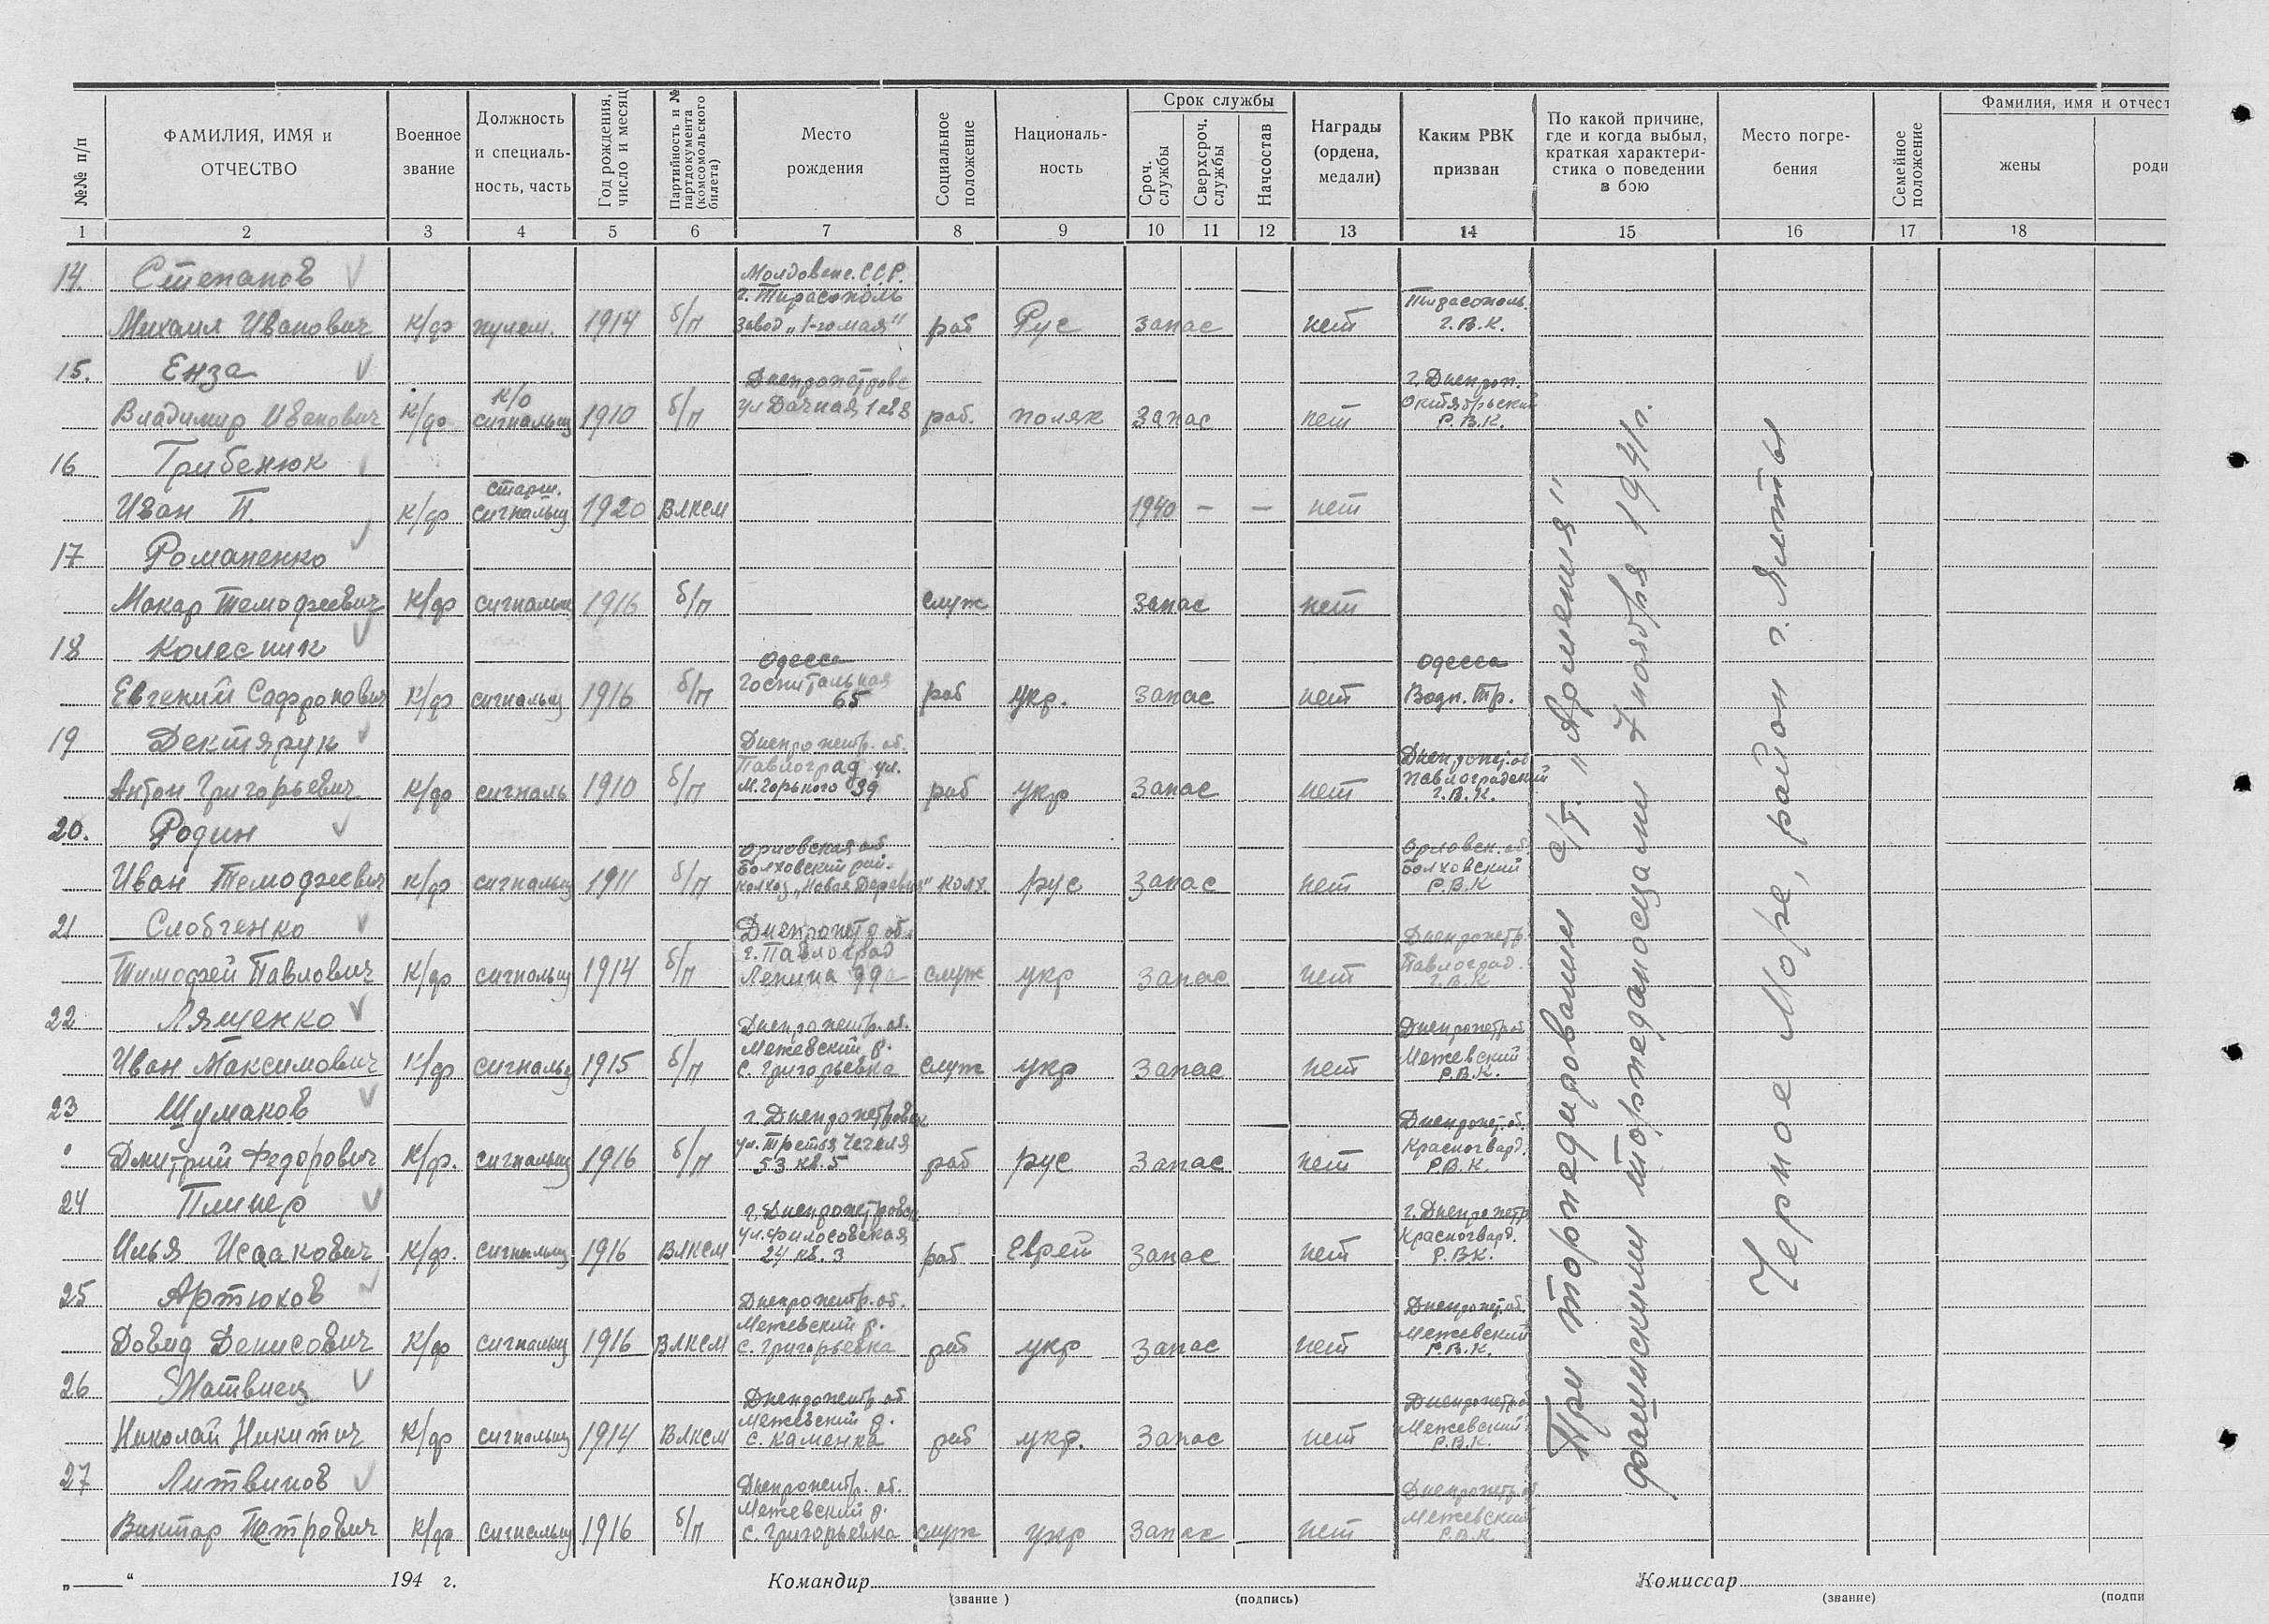 №№ п/п
ФАМИЛИЯ, ИМЯ и ОТЧЕСТВО
Военное звание
Должность и специаль-ность, часть
Год рождения, число и месяц
Партийность и № партдокумента (комсомольского билета)
Место рождения
Социальное положение
Националь-ность
Срок службы
Сроч. службы
Сверхсроч. службы
Начсостав
Награды (ордена, медали)
Каким РВК призван
По какой причине, где и когда выбыл, краткая характери-стика о поведении в бою
Место погре-бения
Семейное положение
Фамилия, имя и отчест
жены
родн
1 2 3 4 5 6 7 8 9 10 11 12 13 14 15 16 17 18
14. Степанов Молдовск. С.С.Р.
г. Тирасополь Тирасополь
Михаил Иванович к/ф пулем. 1914 б/п завод „1-го мая" раб Рус запас нет Г.В.К.
15. Енза Днепропетровс г. Днепроп.
к/о Октябрьский
Владимир Иванович к/ф сигнальщ 1910 б/п ул Дачная 1 кв 8 раб. поляк запас нет Р.В.К.
16 Грибенюк
старш.
Иван П. к/ф сигнальщ 1920 ВЛКСМ 1940 — — нет
17 Романенко
Макар Темофеевич к/ф сигнальщ 1916 б/п служ запас нет
18 Колесник Одесса Одесса
Госпитальная
Евгений Сафронович к/ф сигнальщ 1916 б/п 65 раб укр. запас нет Водн. Тр.
19 Дектярук Днепропетр. об. Днепропет. об
Павлоград ул. Павлоградский
Антон Григорьевич к/ф сигналь 1910 б/п М. Горького 39 раб укр запас нет Г.В.К.
20. Родин Орловская об Орловск. об.
Болховский рай. Болховский
Иван Темофеевич к/ф сигнальщ 1911 б/п колхоз „Новая Деревня" колх. рус запас нет Р.В.К
21 Слобченко Днепропетр об. Днепропетр.
г. Павлоград Павлоград.
Тимофей Павлович к/ф сигнальщ 1914 б/п Ленина служ укр запас нет Г.В.К
22 Лященко Днепропетр. об. Днепропетр об
Межевский р. Межевский
Иван Максимович к/ф сигнальщ 1915 б/п с. Григорьевка служ укр запас нет Р.В.К.
23 Шумаков г. Днепропетровск Днепропет. об.
ул. Третья Чечеля Красногвард.
Дмитрий Федорович к/ф. сигнальщ 1916 б/п 53 кв. 5 раб рус запас нет Р.В.К.
24 Плинер г. Днепропетровск г. Днепропетр
ул. Философская Красногвард.
Илья Исаакович к/ф. сигнальщ 1916 ВЛКСМ 24 кв. 3 раб Еврей запас нет Р.В.К.
25 Артюхов Днепропетр. об. Днепропет. об.
Межевский р. Межевский
Довид Денисович к/ф сигнальщ 1916 ВЛКСМ с. Григорьевка раб укр запас нет Р.В.К.
26 Матвиец Днепропетр об Днепропетр об
Межевский р. Межевский
Николай Никитич к/ф сигнальщ 1914 ВЛКСМ с. Каменка раб укр. запас нет Р.В.К.
27 Литвинов Днепропетр. об. Днепропетр. об
Межевский р. Межевский
Виктор Петрович к/ф сигнальщ 1916 б/п с. Григорьевка служ укр запас нет Р.В.К
При торпедировании с/т. „Армения"
фашискими торпедоносцами 7 ноября 1941г.
Черное Море, район г. Ялты
„——" 194 г. Командир Комиссар
(звание) (подпись) (звание) (подпи